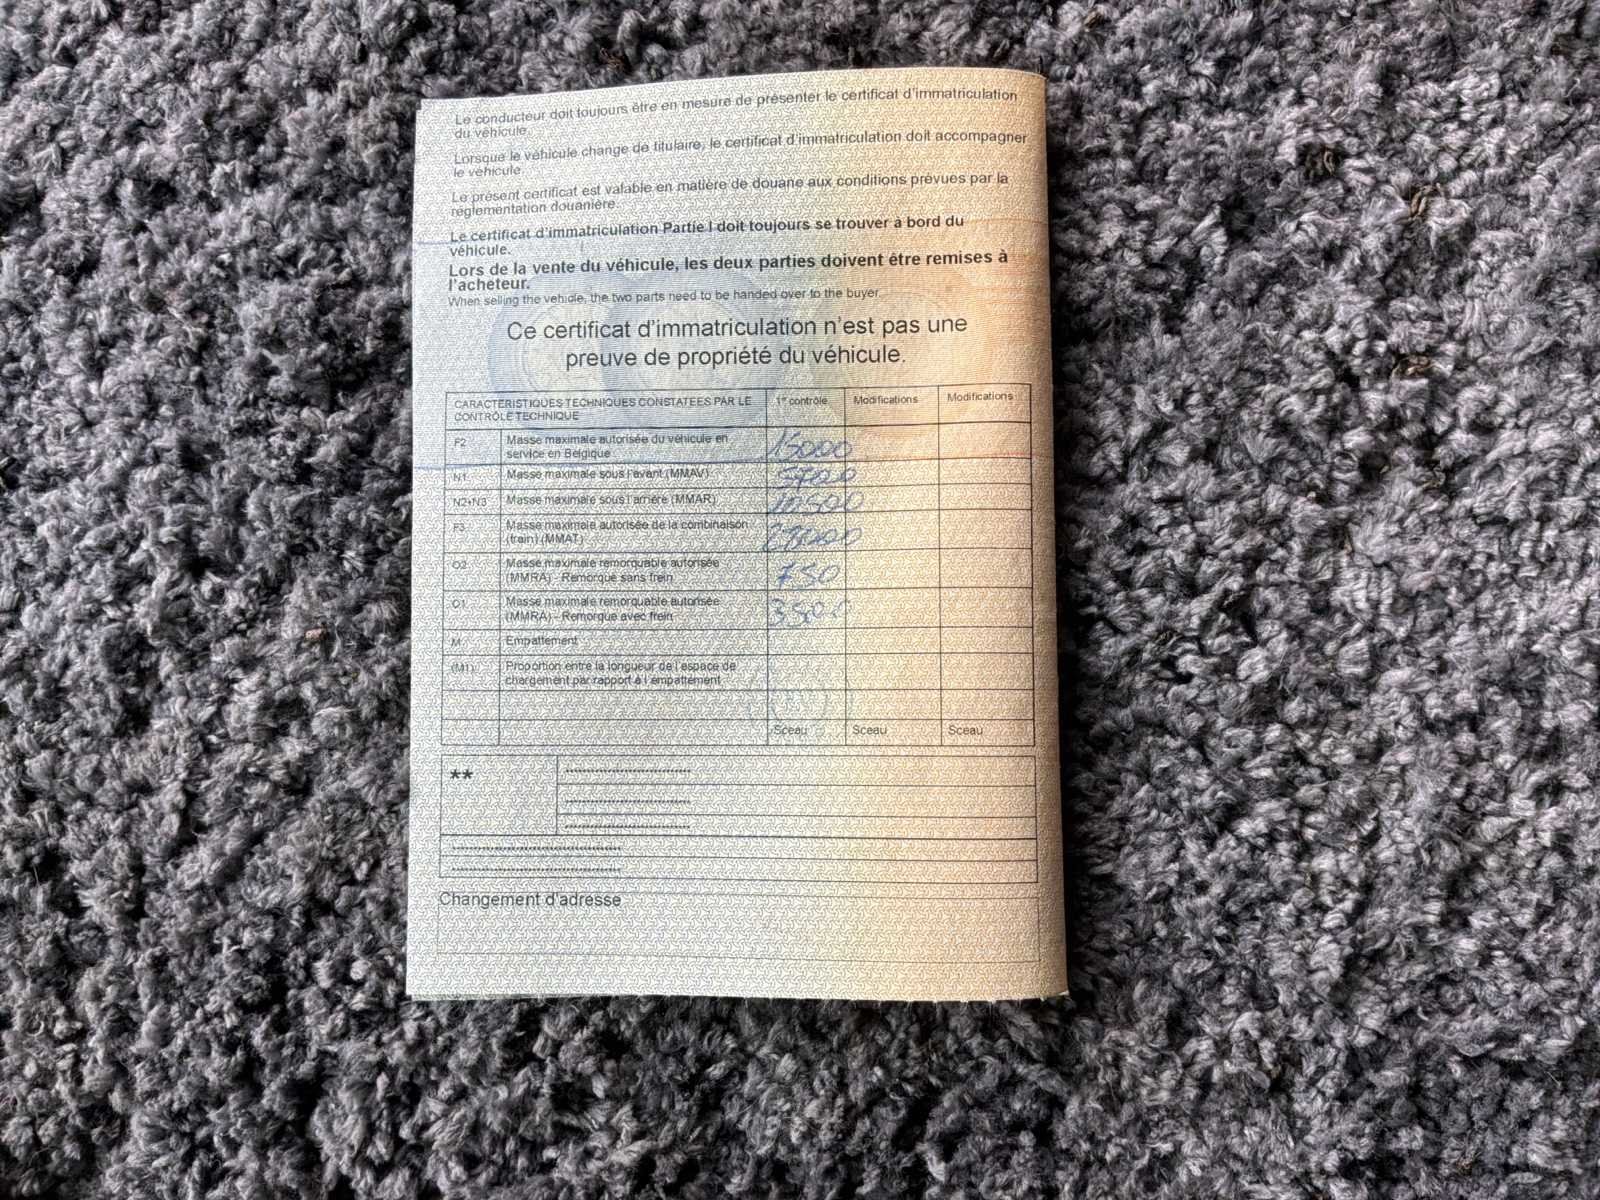 Le conducteur doit toujours être en mesure de présenter le certificat d'immatriculation
du véhicule.
Lorsque le véhicule change de titulaire, le certificat d'immatriculation doit accompagner
le véhicule.
Le présent certificat est valable en matière de douane aux conditions prévues par la
réglementation douanière.
Le certificat d'immatriculation Partie I doit toujours se trouver à bord du
véhicule.
Lors de la vente du véhicule, les deux parties doivent être remises à
l'acheteur.
When selling the vehicle, the two parts need to be handed over to the buyer.
Ce certificat d'immatriculation n'est pas une
preuve de propriété du véhicule.
CARACTÉRISTIQUES TECHNIQUES CONSTATÉES PAR LE
CONTRÔLE TECHNIQUE
1er contrôle
Modifications
Modifications
F2
Masse maximale autorisée du véhicule en
service en Belgique
15000
N1
Masse maximale sous l'avant (MMAV)
N2+N3
Masse maximale sous l'arrière (MMAR)
10500
F3
Masse maximale autorisée de la combinaison
(train) (MMAT)
O2
Masse maximale remorquable autorisée
(MMRA) - Remorque sans frein
750
O1
Masse maximale remorquable autorisée
(MMRA) - Remorque avec frein
3500
M
Empattement
(M1)
Proportion entre la longueur de l'espace de
chargement par rapport à l'empattement
Sceau
Sceau
Sceau
**
Changement d'adresse